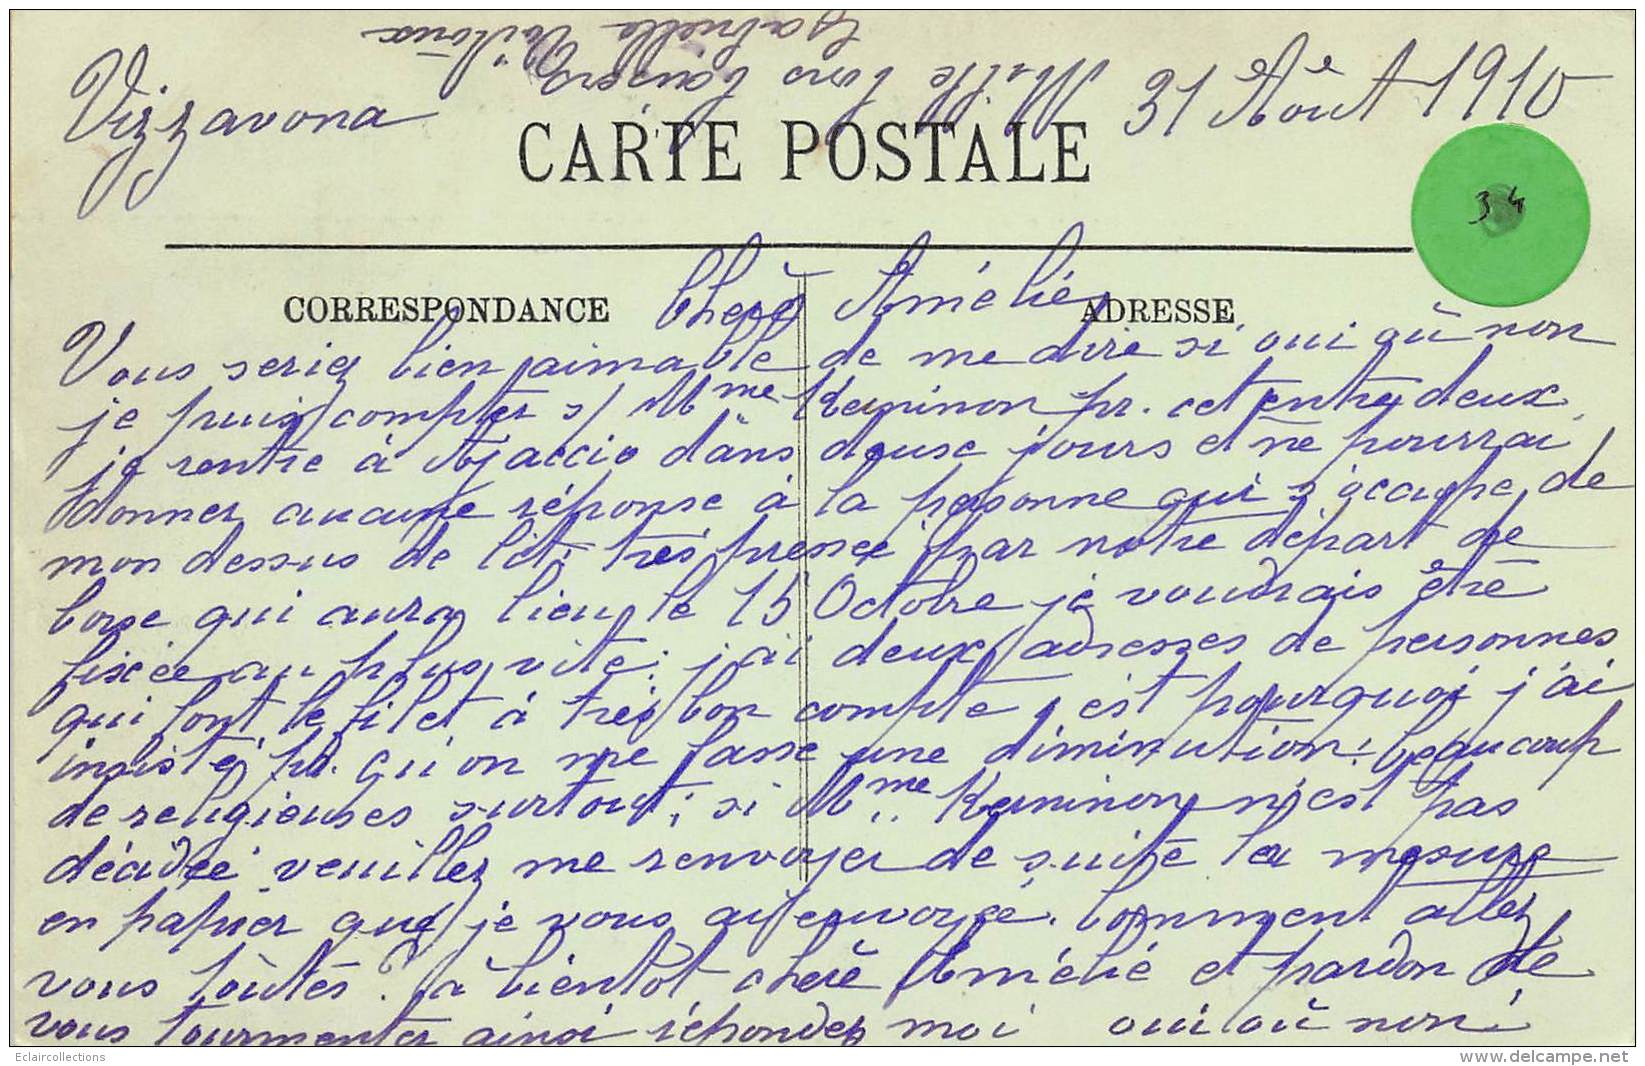 Vizzavona 31 Août 1910
Mille bons baisers
Gabrielle
CARTE POSTALE
34
CORRESPONDANCE
ADRESSE
Chère Amélie,
Vous seriez bien aimable de me dire si oui où non
je puis compter s/ Mme Keminon pr. cet entre, deux
je rentre à Ajaccio dans douse jours et ne pourrai
donner aucune réponse à la personne qui s'ocauppe, de
mon dessus de lit; très pressée par notre départ de
Corse qui aura lieu le 15 Octobre je voudrais être
fixée au plus vite: j'ai deux adresses de personnes
qui font le filet à très bon compte, c'est pourquoi j'ai
insisté pr. qu'on me fasse une diminution; beaucoup
de religieuses surtout; si Mme Keminon n'est pas
décidée veuillez me renvoyer de suite la mesure
en papier que je vous ai envoyée. Comment allez
vous toutes? à bientot chère Amélie et pardon de
vous tourmenter ainsi répondez moi oui où non!
Eclaircollections
www.delcampe.net